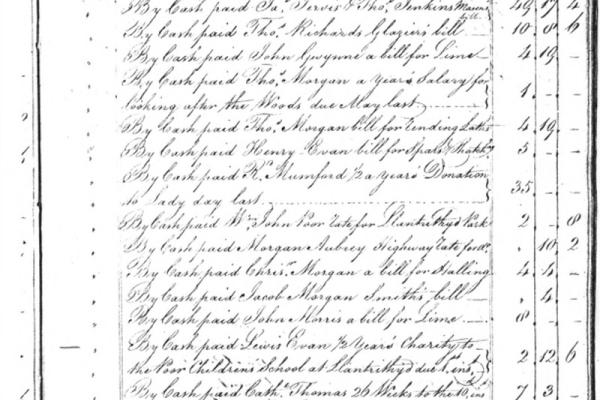 By Cash paid Jas. Jervis & Thos. Jenkins Masons bill 49 17 4
By Cash paid Thos. Richards Glaziers bill 10 8 6
By Cash paid John Gwynne a bill for Lime 4 19 –
By Cash paid Thos. Morgan a years Salary for
looking after the Woods due May last 1 – –
By Cash paid Thos. Morgan bill for Rending Laths 4 19 –
By Cash paid Henry Evan bill for Spars & 5 – –
By Cash paid Rd. Mumford 1/2 a years Donation
to Lady day last 35 – –
By Cash paid Wm. John Poor rate for Llantrithyd Park 2 – 8
By Cash paid Morgan Aubrey Highway rate for do. , 10 2
By Cash paid Chrisr. Morgan a bill for Halling 4 4 –
By Cash paid Jacob Morgan Smiths bill , 4 –
By Cash paid John Morris a bill for Lime 8 – –
By Cash paid Lewis Evan 1/2 Years Charity to
the Poor Childrens School at Llantrithyd due 1st. inst. 2 12 6
By Cash paid Cathe. Thomas 26 Weeks to the 10 inst 7 3 –